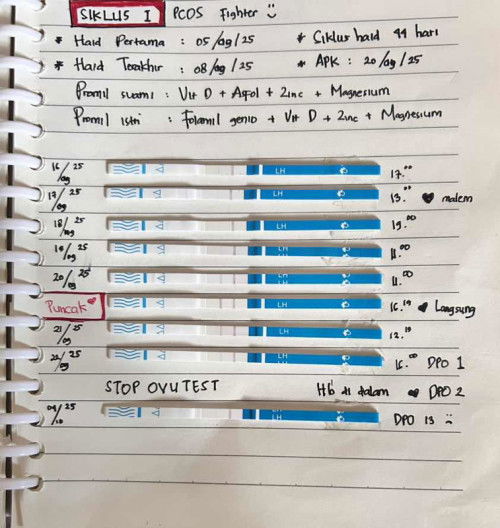 SIKLUS I PCOS Fighter
* Haid Pertama : 05/ag/25 * Siklus haid 44 hari
* Haid Terakhir : 08/ag/25 * APK : 20/ag/25
Promil suami : Vit D + Asfol + Zinc + Magnesium
Promil istri : Folamil genio + Vit D + Zinc + Magnesium
16/ag 25 LH 17.00
17/ag 25 LH 19.00 malem
18/ag 25 LH 19.00
19/ag 25 LH 11.00
20/ag 25 LH 11.00
Puncak LH 16.19 Langsung
21/ag 25 LH 12.19
22/ag 25 LH 16.00 DPO 1
STOP OVUTEST Hb di dalam DPO 2
04/10 25 LH DPO 13